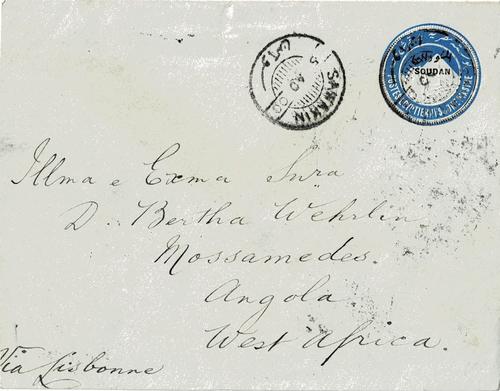 SAWAKIN
SOUDAN
POSTES EGYPTIENNES
Illma e Exma Snra
D. Bertha Wehrlin
Mossamedes.
Angola
West Africa.
Via Lisbonne